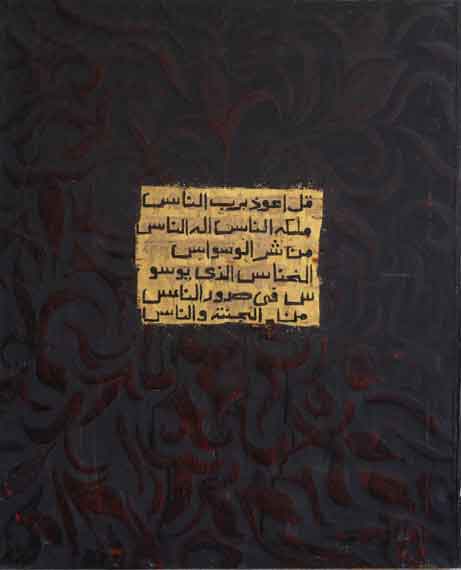 قل اعوذ برب الناس
ملك الناس اله الناس
من شر الوسواس
الخناس الذى يوسو
س فى صدور الناس
من الجنة والناس